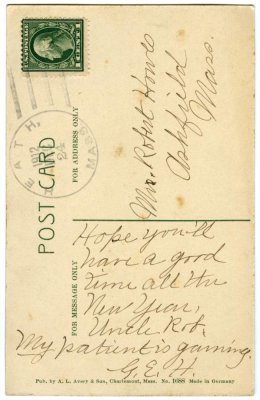 U.S. POSTAGE
1 CENT 1
HEATH,
MASS.
1912
POST CARD
FOR ADDRESS ONLY
Mr. Robert Howes
Ashfield
Mass.
FOR MESSAGE ONLY
Hope you'll
have a good
time all the
New Year,
Uncle Rob.
My patient is gaining.
G. E. H.
Pub. by A. L. Avery & Son, Charlemont, Mass. No. Made in Germany